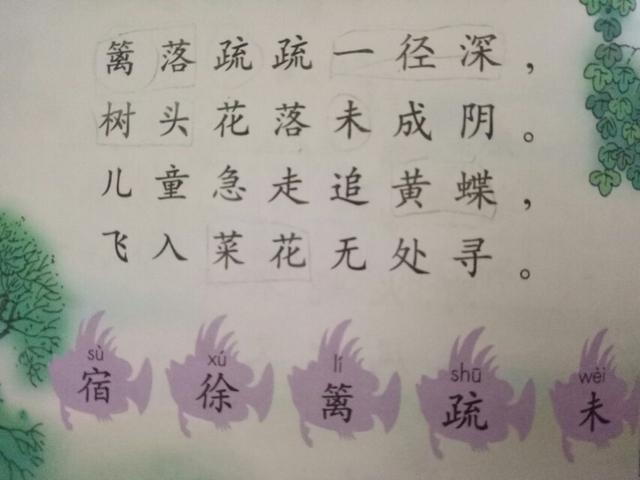 篱落疏疏一径深，
树头花落未成阴。
儿童急走追黄蝶，
飞入菜花无处寻。
sù xú lí shū wèi
宿 徐 篱 疏 未